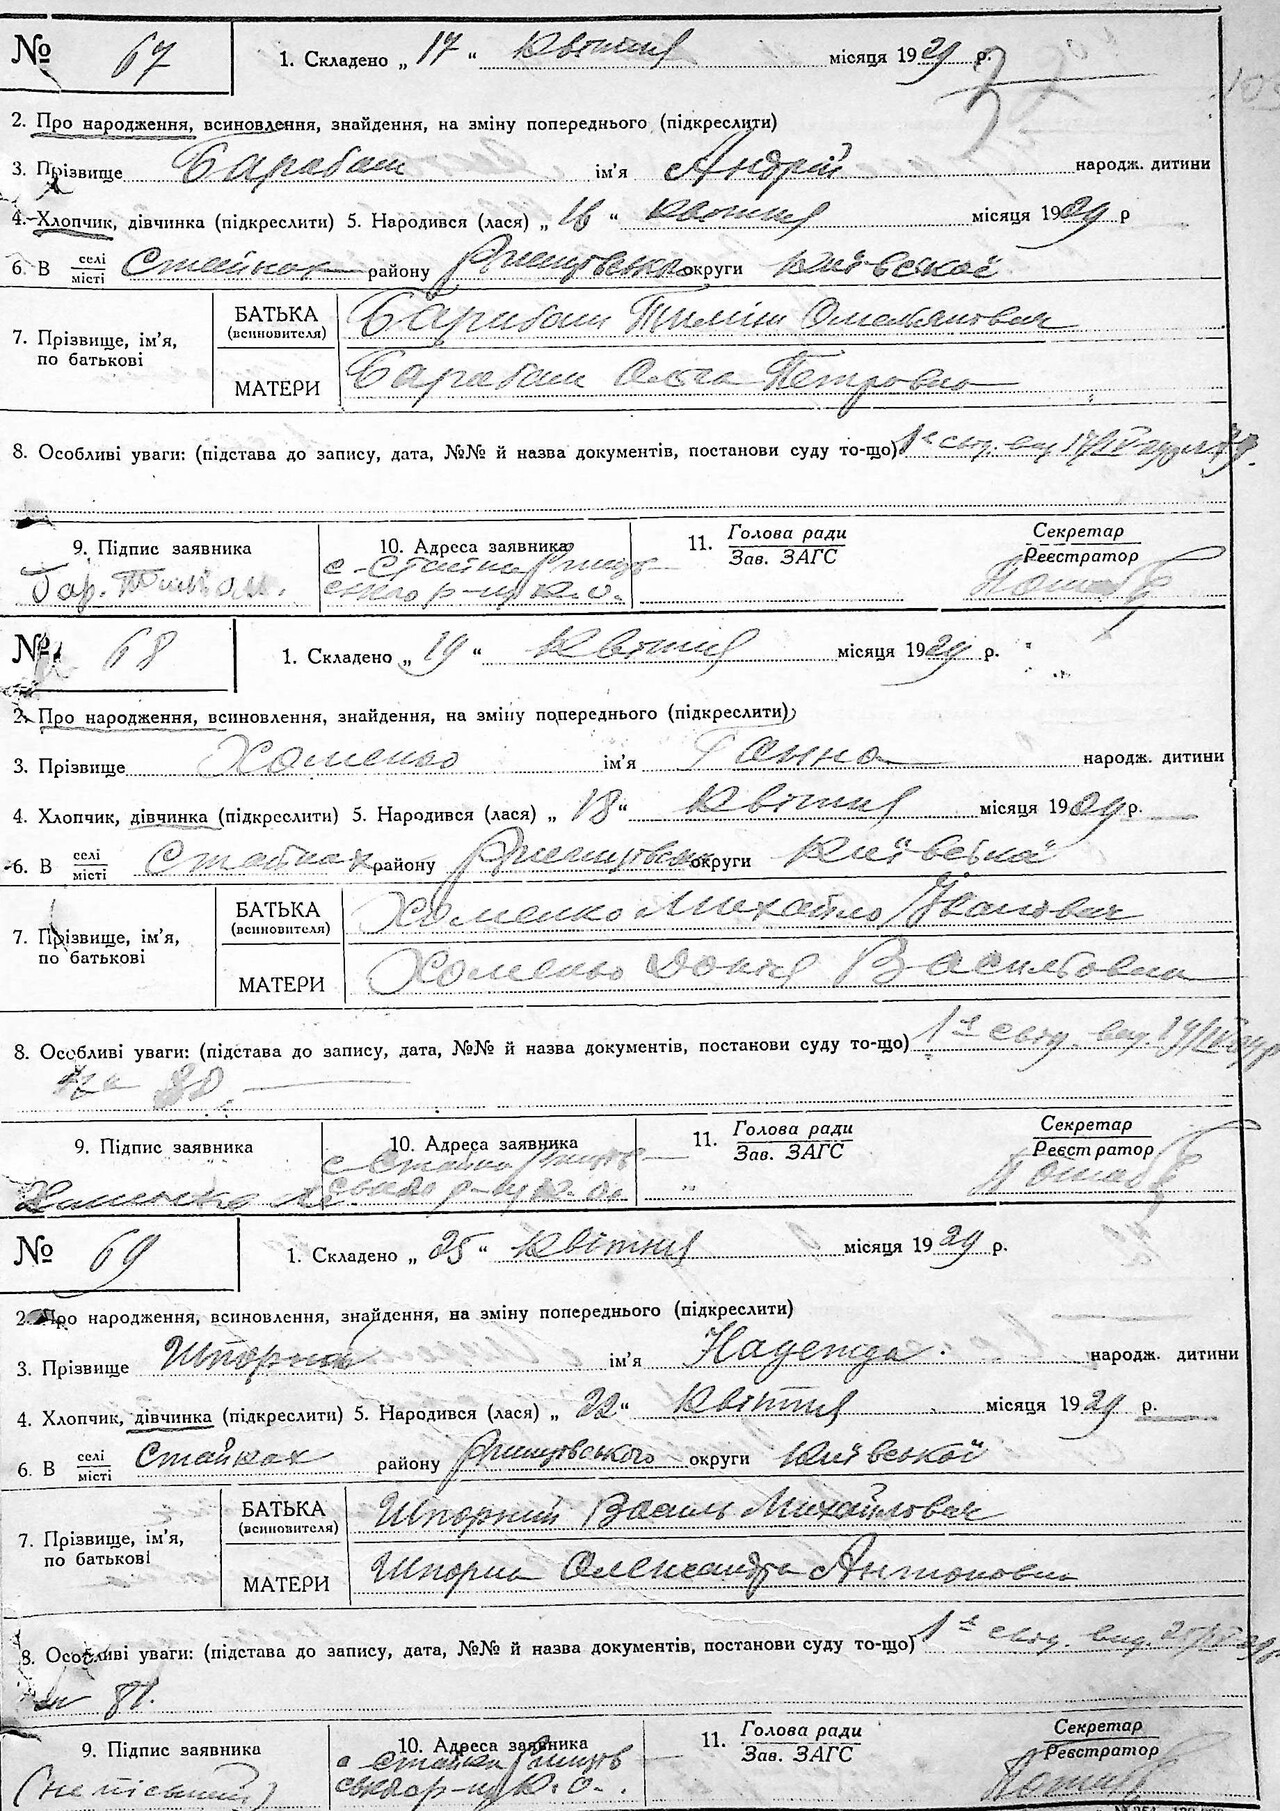 № 67 1. Складено „ 17 “ Квітня місяця 1929 р.
2. Про народження, всиновлення, знайдення, на зміну попереднього (підкреслити)
3. Прізвище Барабаш ім'я Андрій народж. дитини
4. Хлопчик, дівчинка (підкреслити) 5. Народився (лася) „ 16 “ Квітня місяця 1929 р
6. В селі/місті Стайках району Ржищівськ округи Київської
7. Прізвище, ім'я, по батькові
БАТЬКА (всиновителя) Барабаш Омельянович
МАТЕРИ Барабаш Ольга Петровна
8. Особливі уваги: (підстава до запису, дата, №№ й назва документів, постанови суду то-що)
9. Підпис заявника 10. Адреса заявника 11. Голова ради Секретар
Зав. ЗАГС Реєстратор
Бар. с. Стайки Ржищів
ського р-ну К. О.
№ 68 1. Складено „ 19 “ Квітня місяця 1929 р.
2. Про народження, всиновлення, знайдення, на зміну попереднього (підкреслити)
3. Прізвище Хоменко ім'я Ганна народж. дитини
4. Хлопчик, дівчинка (підкреслити) 5. Народився (лася) „ 18 “ Квітня місяця 1929 р.
6. В селі/місті Стайках району Ржищівськ округи Київської
7. Прізвище, ім'я, по батькові
БАТЬКА (всиновителя) Хоменко Михайло Іванович
МАТЕРИ Хоменко Докія Васильовна
8. Особливі уваги: (підстава до запису, дата, №№ й назва документів, постанови суду то-що)
80
9. Підпис заявника 10. Адреса заявника 11. Голова ради Секретар
Зав. ЗАГС Реєстратор
Хоменко М. с. Стайки Ржищів
ського р-ну К. О.
№ 69 1. Складено „ 25 “ Квітня місяця 1929 р.
2. Про народження, всиновлення, знайдення, на зміну попереднього (підкреслити)
3. Прізвище Шпорна ім'я Надежда народж. дитини
4. Хлопчик, дівчинка (підкреслити) 5. Народився (лася) „ 22 “ Квітня місяця 1929 р.
6. В селі/місті Стайках району Ржищівського округи Київської
7. Прізвище, ім'я, по батькові
БАТЬКА (всиновителя) Шпорний Василь Михайлович
МАТЕРИ Шпорна Олександра Антоновна
8. Особливі уваги: (підстава до запису, дата, №№ й назва документів, постанови суду то-що)
81.
9. Підпис заявника 10. Адреса заявника 11. Голова ради Секретар
Зав. ЗАГС Реєстратор
с. Стайки Ржищів
ського р-ну К. О.